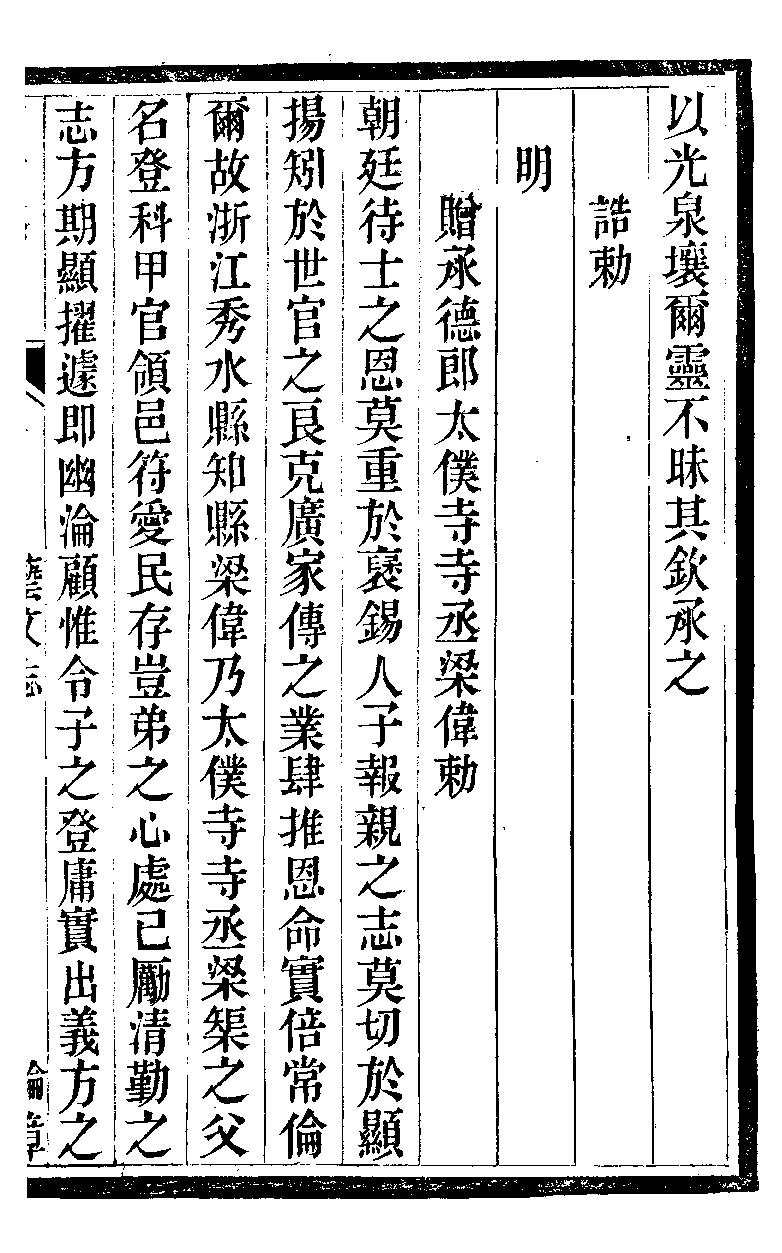 以光泉壤爾靈不昧其欽承之
誥勅
明
贈承德郎太僕寺寺丞梁偉勅
朝廷待士之恩莫重於褒錫人子報親之志莫切於顯
揚矧於世官之良克廣家傳之業肆推恩命實倍常倫
爾故浙江秀水縣知縣梁偉乃太僕寺寺丞梁榘之父
名登科甲官領邑符愛民存豈弟之心處已勵清勤之
志方期顯擢遽即幽淪顧惟令子之登庸實出義方之
藝文志
綸章